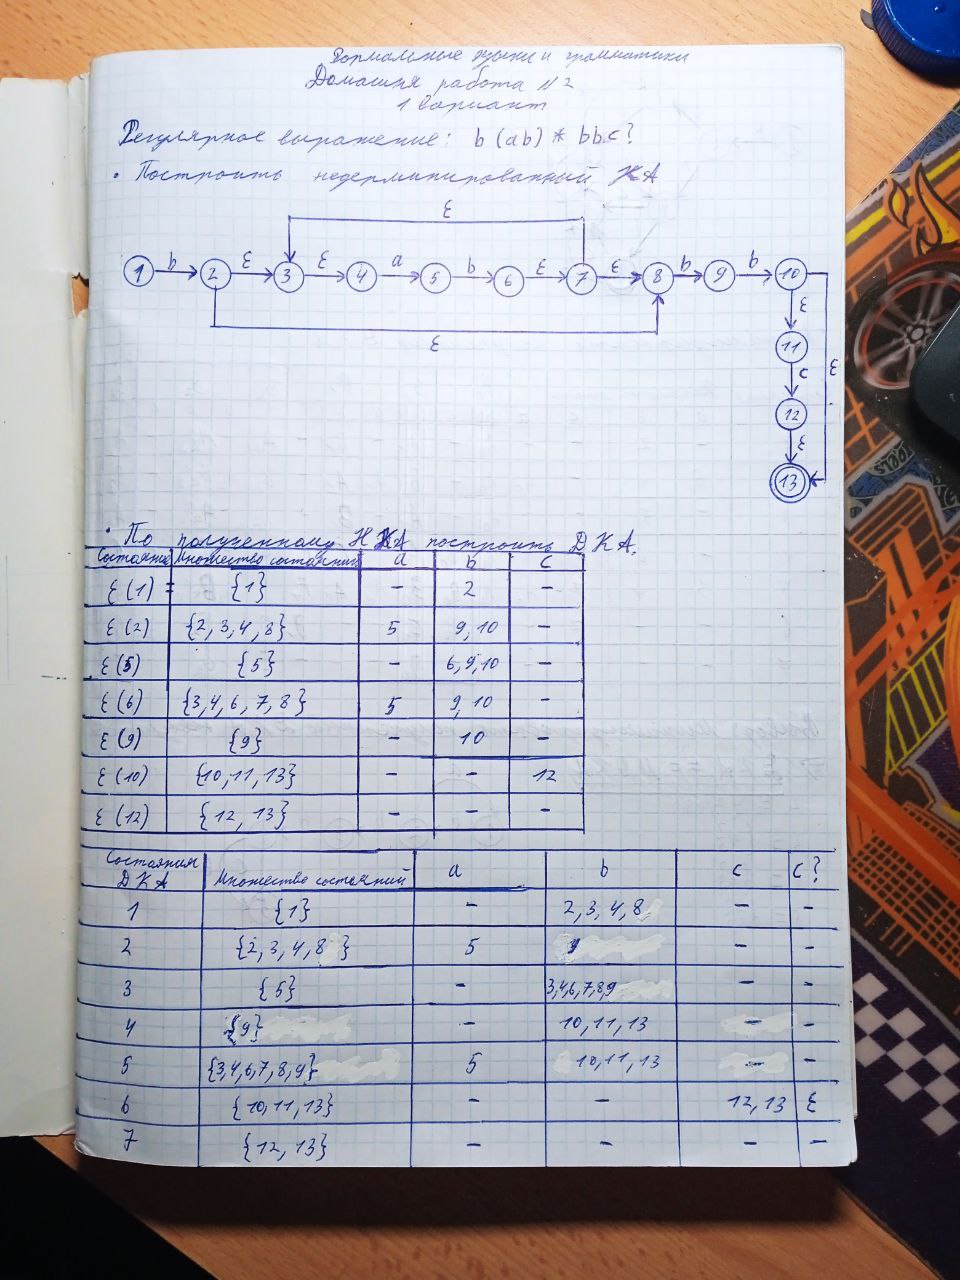 Формальные языки и грамматики
Домашняя работа №2
1 вариант
Регулярное выражение: b (ab) * bbc?
• Построить недерминированный КА
ε
1 b 2 ε 3 ε 4 a 5 b 6 ε 7 ε 8 b 9 b 10
ε
ε
11
ε
c
12
ε
13
• По полученному НКА построить ДКА.
Состояние Множество состояний a b c
ε (1) = {1} - 2 -
ε (2) {2, 3, 4, 8} 5 9, 10 -
ε (5) {5} - 6, 9, 10 -
ε (6) {3, 4, 6, 7, 8} 5 9, 10 -
ε (9) {9} - 10 -
ε (10) {10, 11, 13} - - 12
ε (12) {12, 13} - - -
Состояния ДКА Множество состояний a b c c?
1 {1} - 2, 3, 4, 8 - -
2 {2, 3, 4, 8 } 5 9 - -
3 {5} - 3,4,6,7,8,9 - -
4 {9} - 10, 11, 13 - -
5 {3,4,6,7,8,9} 5 10, 11, 13 - -
6 {10, 11, 13} - - 12, 13 ε
7 {12, 13} - - - -